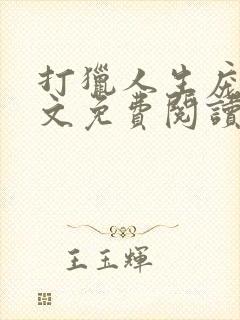 打獵人生
文免費閱讀
王玉輝